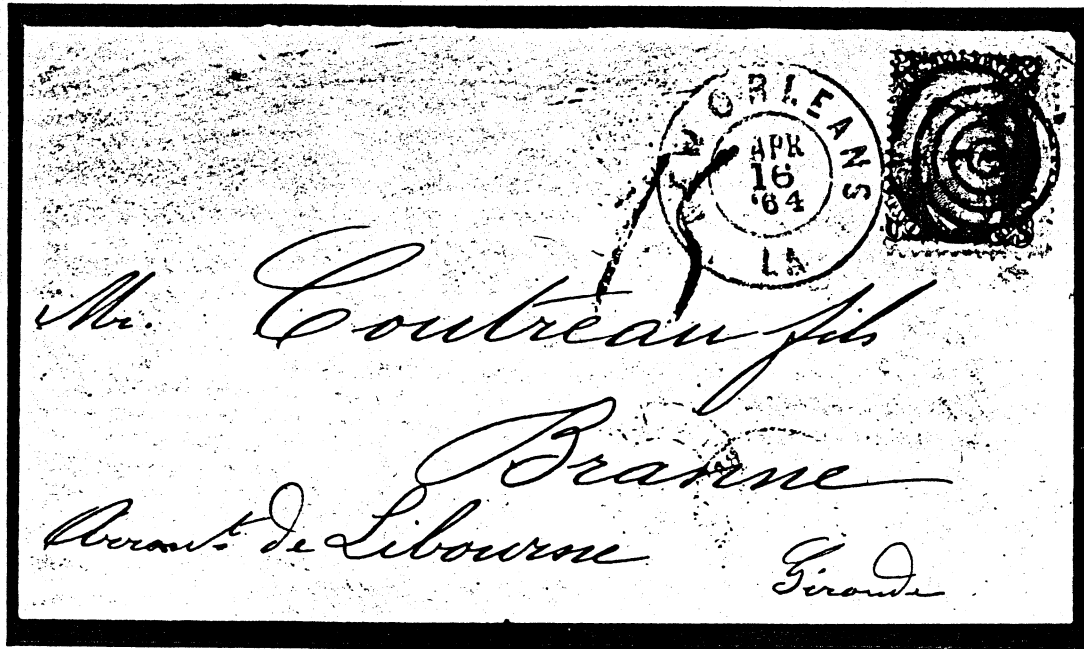 N. ORLEANS
APR
16
'64
LA
Mr. Coutreau fils
Branne
Arront. de Libourne
Gironde